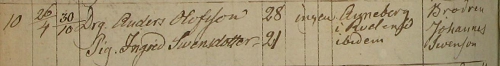 10 26/4 30/10 Drg. Anders Olofsson 28 ingen Runeberg Brodren
i Rudens Johannes
Pig. Ingred Swensdotter 21 ibidem Swenson